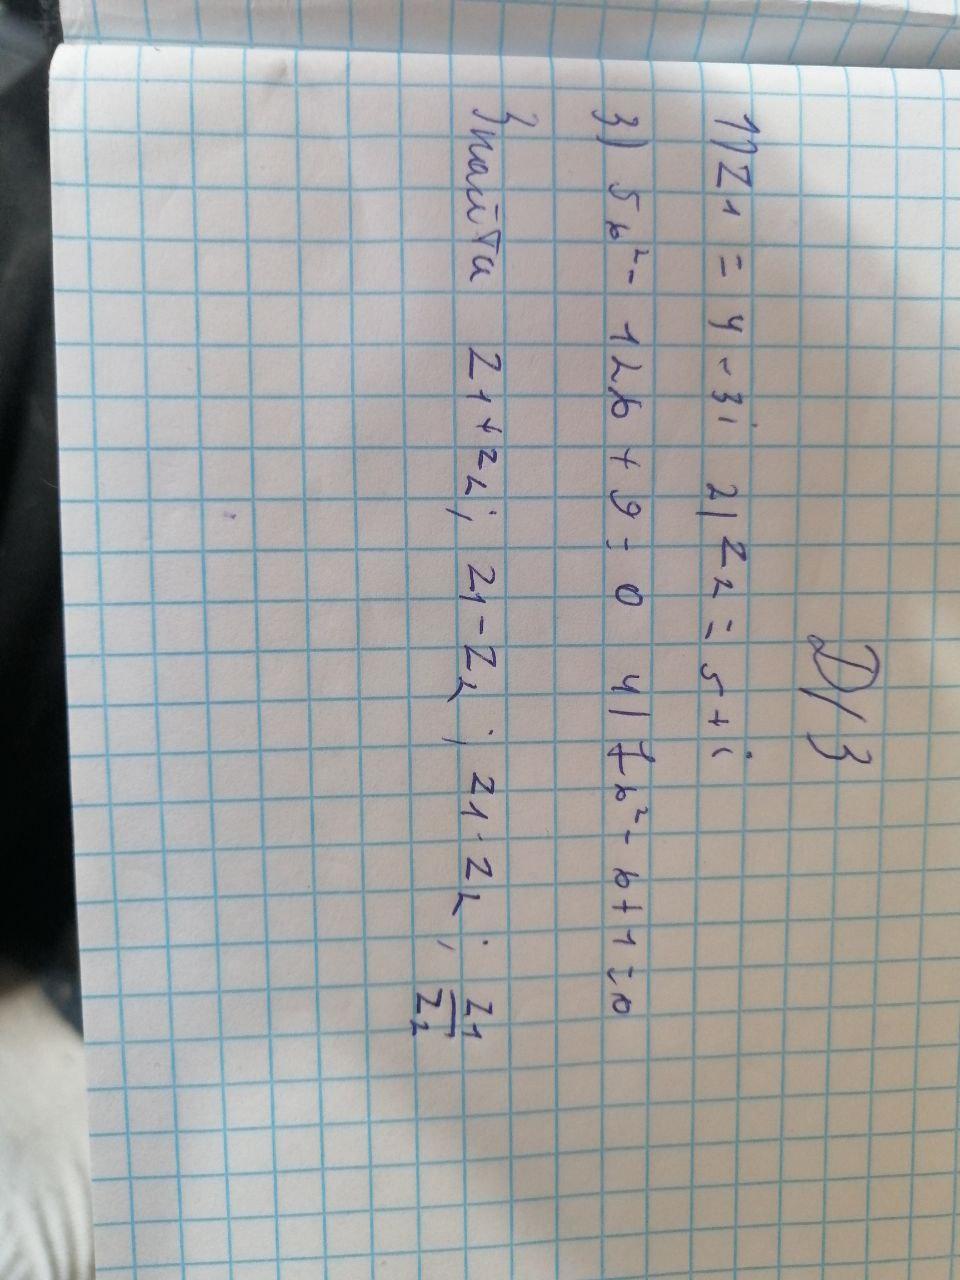 Д/З
1) Z1 = 4 - 3i 2) Z2 = 5 + i
3) 5x² - 12x + 9 = 0 4) 7x² - x + 1 = 0
Знайти Z1 + Z2; Z1 - Z2; Z1 · Z2; Z1/Z2